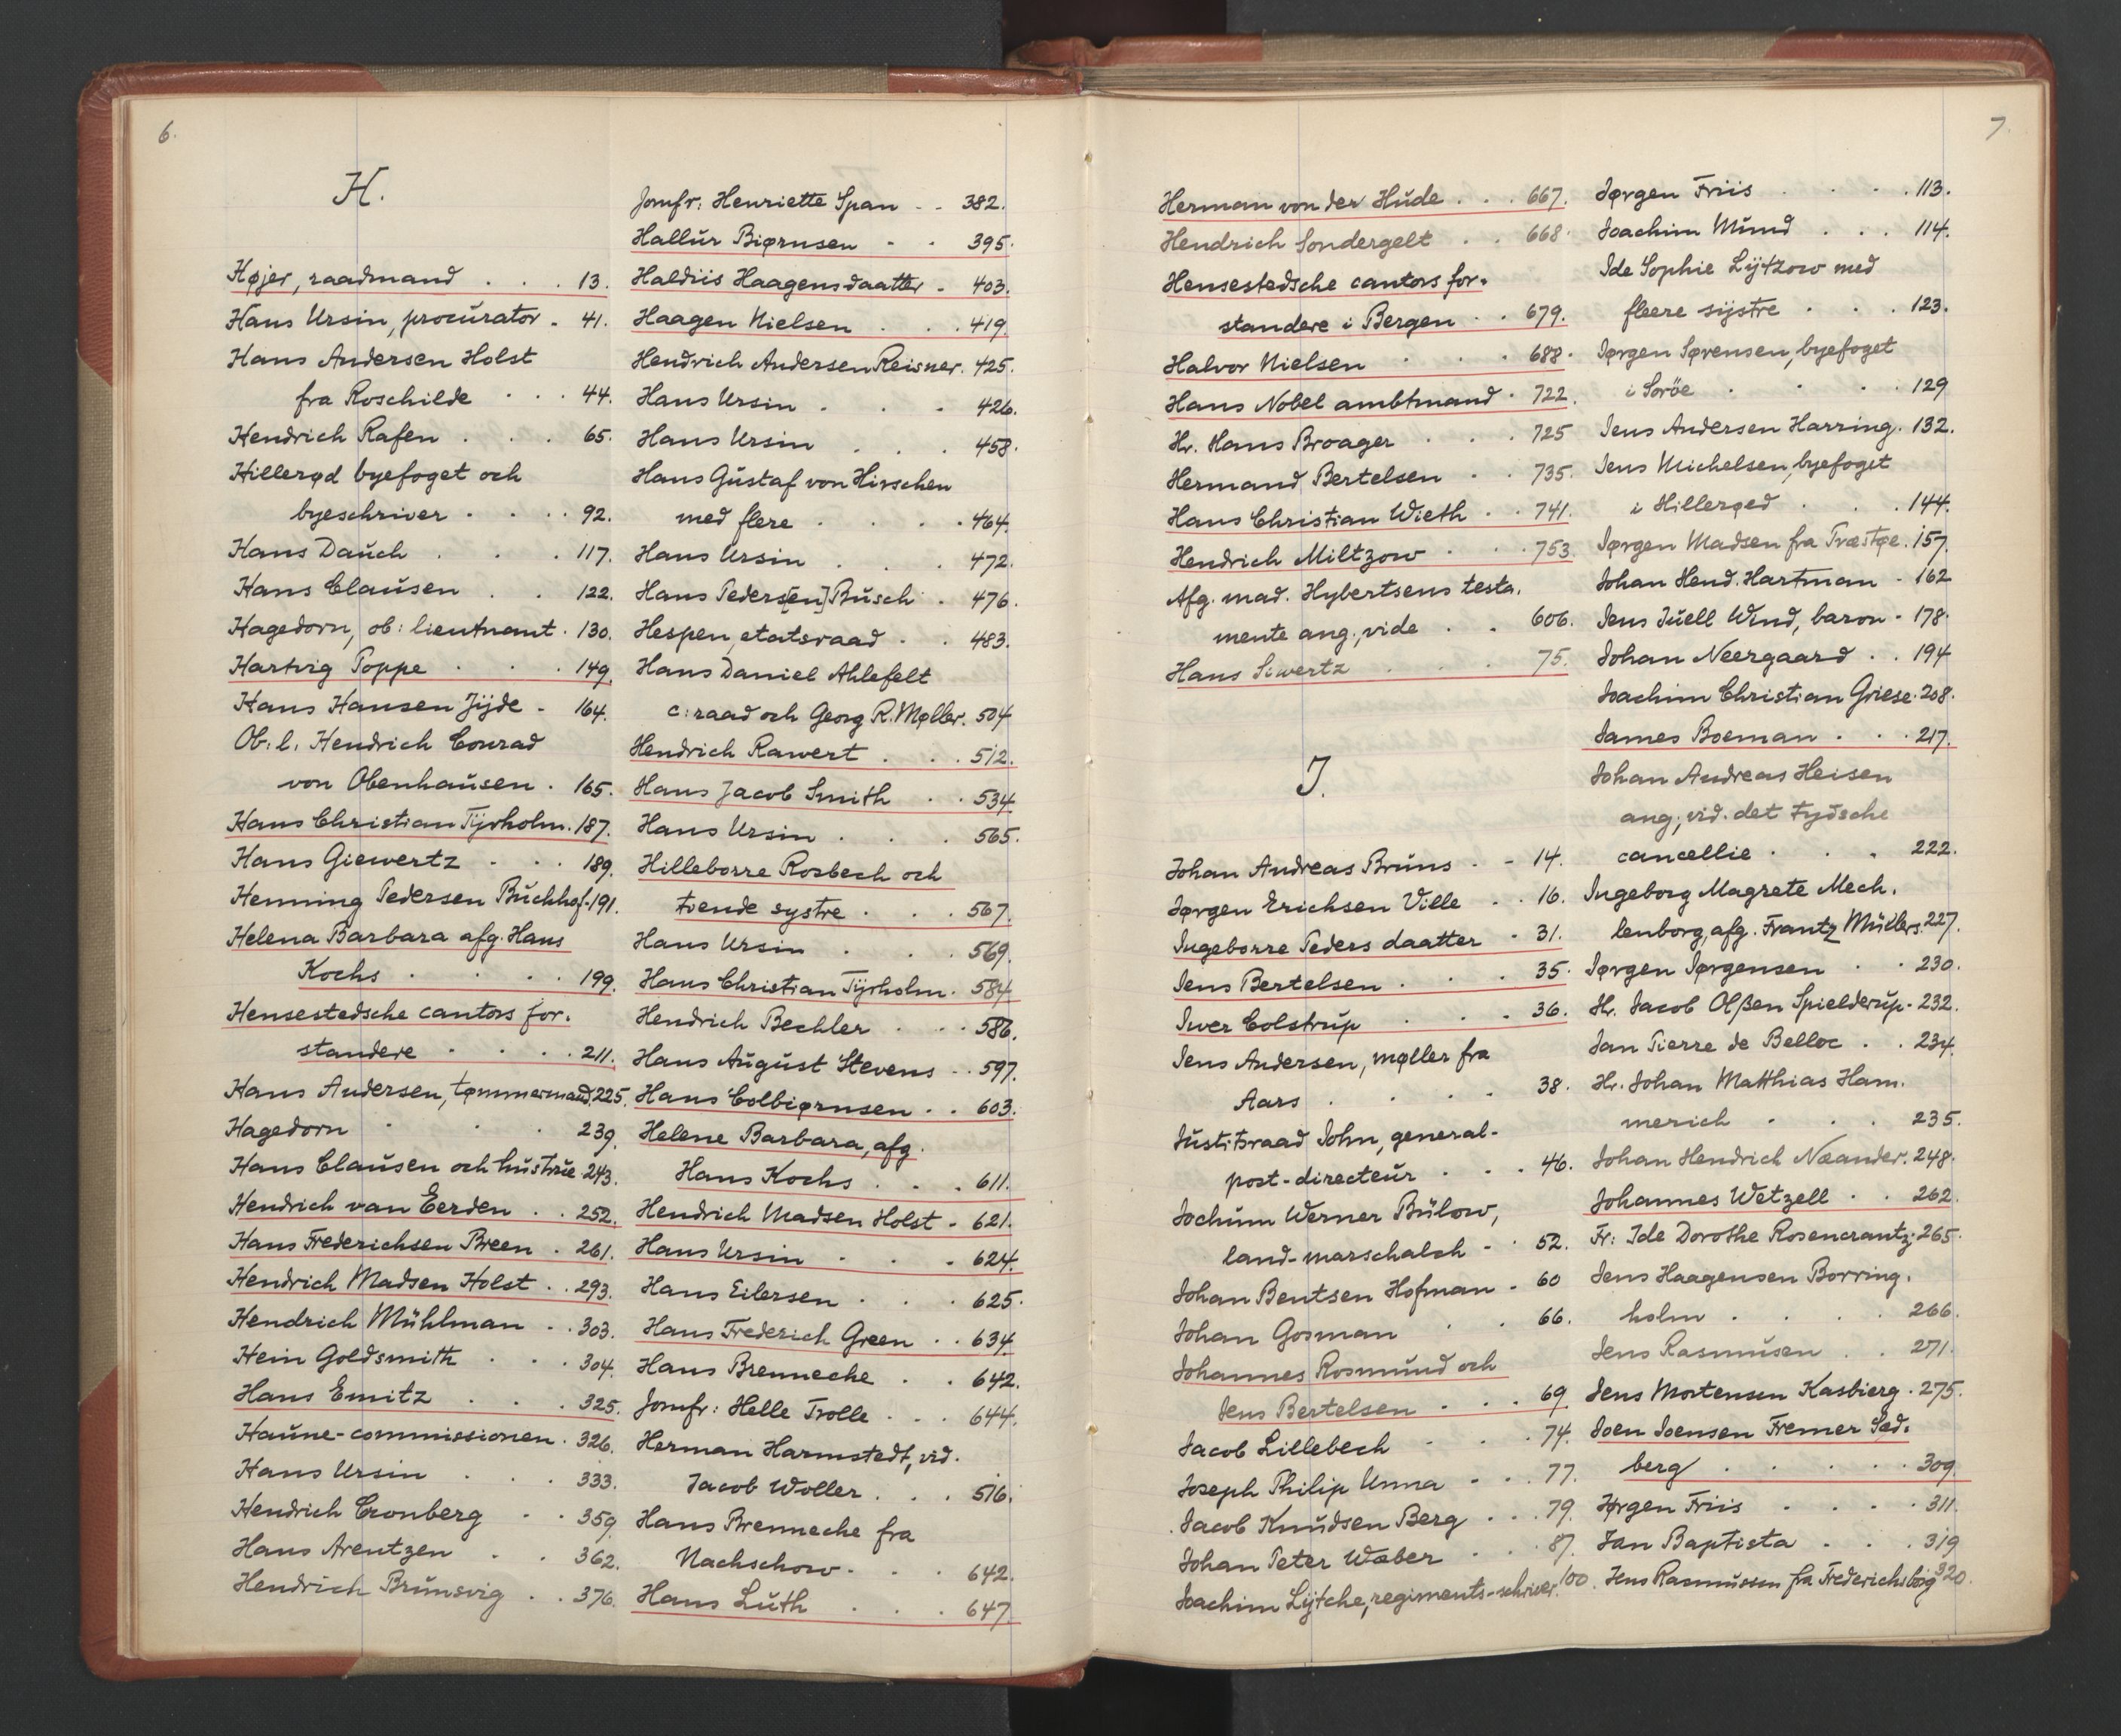 6.
H.
Højer, raadmand . . . 13.
Hans Ursin, procurator . 41.
Hans Andersen Holst
fra Roschilde . . . 44.
Hendrich Rafen . . . 65.
Hillerød byefoget och
byeschriver . . . . 92.
Hans Dauch . . . 117.
Hans Clausen . . 122.
Hagedorn, ob: lieutnant . 130.
Hartvig Poppe . . . 149.
Hans Hansen Jÿde - 164.
Ob: l. Hendrich Conrad
von Obenhausen . 165.
Hans Christian Tÿrholm . 187.
Hans Giewertz . . . 189.
Henning Pedersen Buchhof . 191.
Helena Barbara afg. Hans
Kochs . . . . 199.
Hensestedsche cantors for-
standere . . . . 211.
Hans Andersen, tømmermand . 225.
Hagedorn . . . 239.
Hans Clausen och hustrue 243.
Hendrich van Eerden . . 252.
Hans Frederichsen Breen . 261.
Hendrich Madsen Holst . . 293.
Hendrich Mühlman . . 303.
Hein Goldsmith . . . 304.
Hans Emitz . . . 325.
Haune-commissionen . 326.
Hans Ursin . . . 333.
Hendrich Cronberg . . 359
Hans Arentzen . . 362.
Hendrich Brunsvig . . 376.
Jomfr: Henriette Span . . 382.
Hallur Biørnsen . . 395.
Haldiis Haagensdaatter . 403.
Haagen Nielsen . . . 419.
Hendrich Andersen Reisner . 425.
Hans Ursin . . . 426.
Hans Ursin . . . 458.
Hans Gustaf von Hirschen
med flere . . . . 464.
Hans Ursin . . . 472.
Hans Peders[en] Busch . 476.
Hespen, etatsraad . . 483.
Hans Daniel Ahlefelt
c: raad och Georg R. Møller . 504
Hendrich Rawert . . . 512.
Hans Jacob Smith . . 534
Hans Ursin . . . 565.
Hilleborre Rosbech och
tvende systre . . . 567.
Hans Ursin . . . 569.
Hans Christian Tÿrholm . 584
Hendrich Bechler . . . 586.
Hans August Stevens . . 597.
Hans Colbiørnsen . . 603.
Helene Barbara, afg.
Hans Kochs . . . 611.
Hendrich Madsen Holst . 621.
Hans Ursin . . . 624.
Hans Eilersen . . . 625.
Hans Frederich Green . . 634
Hans Brenneche . . 642.
Jomfr: Helle Trolle . . . 644.
Herman Harmstedt, vid.
Jacob Woller . . . 516.
Hans Brenneche fra
Nachschow . . . 642.
Hans Luth . . . 647.
7.
Herman von der Hude . . . 667.
Hendrich Sondergelt . . 668.
Hensestedsche cantors for-
standere i Bergen . . 679.
Halvor Nielsen . . . 688.
Hans Nobel ambtmand . 722.
Hr. Hans Broager . . . 725
Hermand Bertelsen . . 735.
Hans Christian Wieth . . 741.
Hendrich Miltzow . . . 753.
Afg. mad. Hybertsens testa-
mente ang., vide . . 606.
Hans Siwertz . . . 75.
J.
Johan Andreas Bruns . - 14.
Jørgen Erichsen Ville . . 16.
Ingeborre Peders daatter . 31.
Jens Bertelsen . . . 35.
Iver Colstrup . . . 36.
Jens Andersen, møller fra
Aars . . . . 38.
Justitsraad John, general-
post-directeur . . . 46.
Jochum Werner Bülow,
land-marschalch - . 52.
Johan Bentsen Hofman - 60
Johan Gosman . . 66.
Johannes Rosmund och
Jens Bertelsen . . . 69.
Jacob Lillebech . . . 74.
Joseph Philip Unna . . . 77.
Jacob Knudsen Berg . . . 79.
Johan Peter Wæber . . . 87.
Joachim Lÿtche, regiments-schriver . 100.
Jørgen Friis . . . . 113.
Joachim Mund . . . 114.
Ide Sophie Lÿtzow med
fleere sÿstre . . . 123.
Jørgen Sørensen, byefoget
i Soröe . . . . 129
Jens Andersen Harring . 132.
Jens Michelsen, byefoget
i Hillerøed . . . 144.
Jørgen Madsen fra Præstøe . 157.
Johan Hend. Hartman - 162
Jens Juell Wind, baron - 178.
Johan Neergaard . . 194
Joachim Christian Griese . 208.
James Boeman . . . 217.
Johan Andreas Heisen
ang., vid. det tydsche
cancellie . . . 222.
Ingeborg Magrete Mech-
lenborg, afg. Frantz Müllers 227.
Jørgen Jørgensen . . 230.
Hr. Jacob Olßen Spielderup . 232.
Jan Pierre de Belloc . . 234.
Hr. Johan Matthias Ham-
merich . . . 235.
Johan Hendrich Næander . 248.
Johannes Wetzell . . 262.
Fr: Ide Dorothe Rosencrantz . 265.
Jens Haagensen Borring-
holm . . . . 266.
Jens Rasmusen . . 271.
Jens Mortensen Kasbierg . 275.
Joen Joensen Fremer Sæd-
berg . . . . . 309.
Jørgen Friis . . . . 311.
Jan Baptista . . . 319
Jens Rasmussen fra Frederichsborg 320.